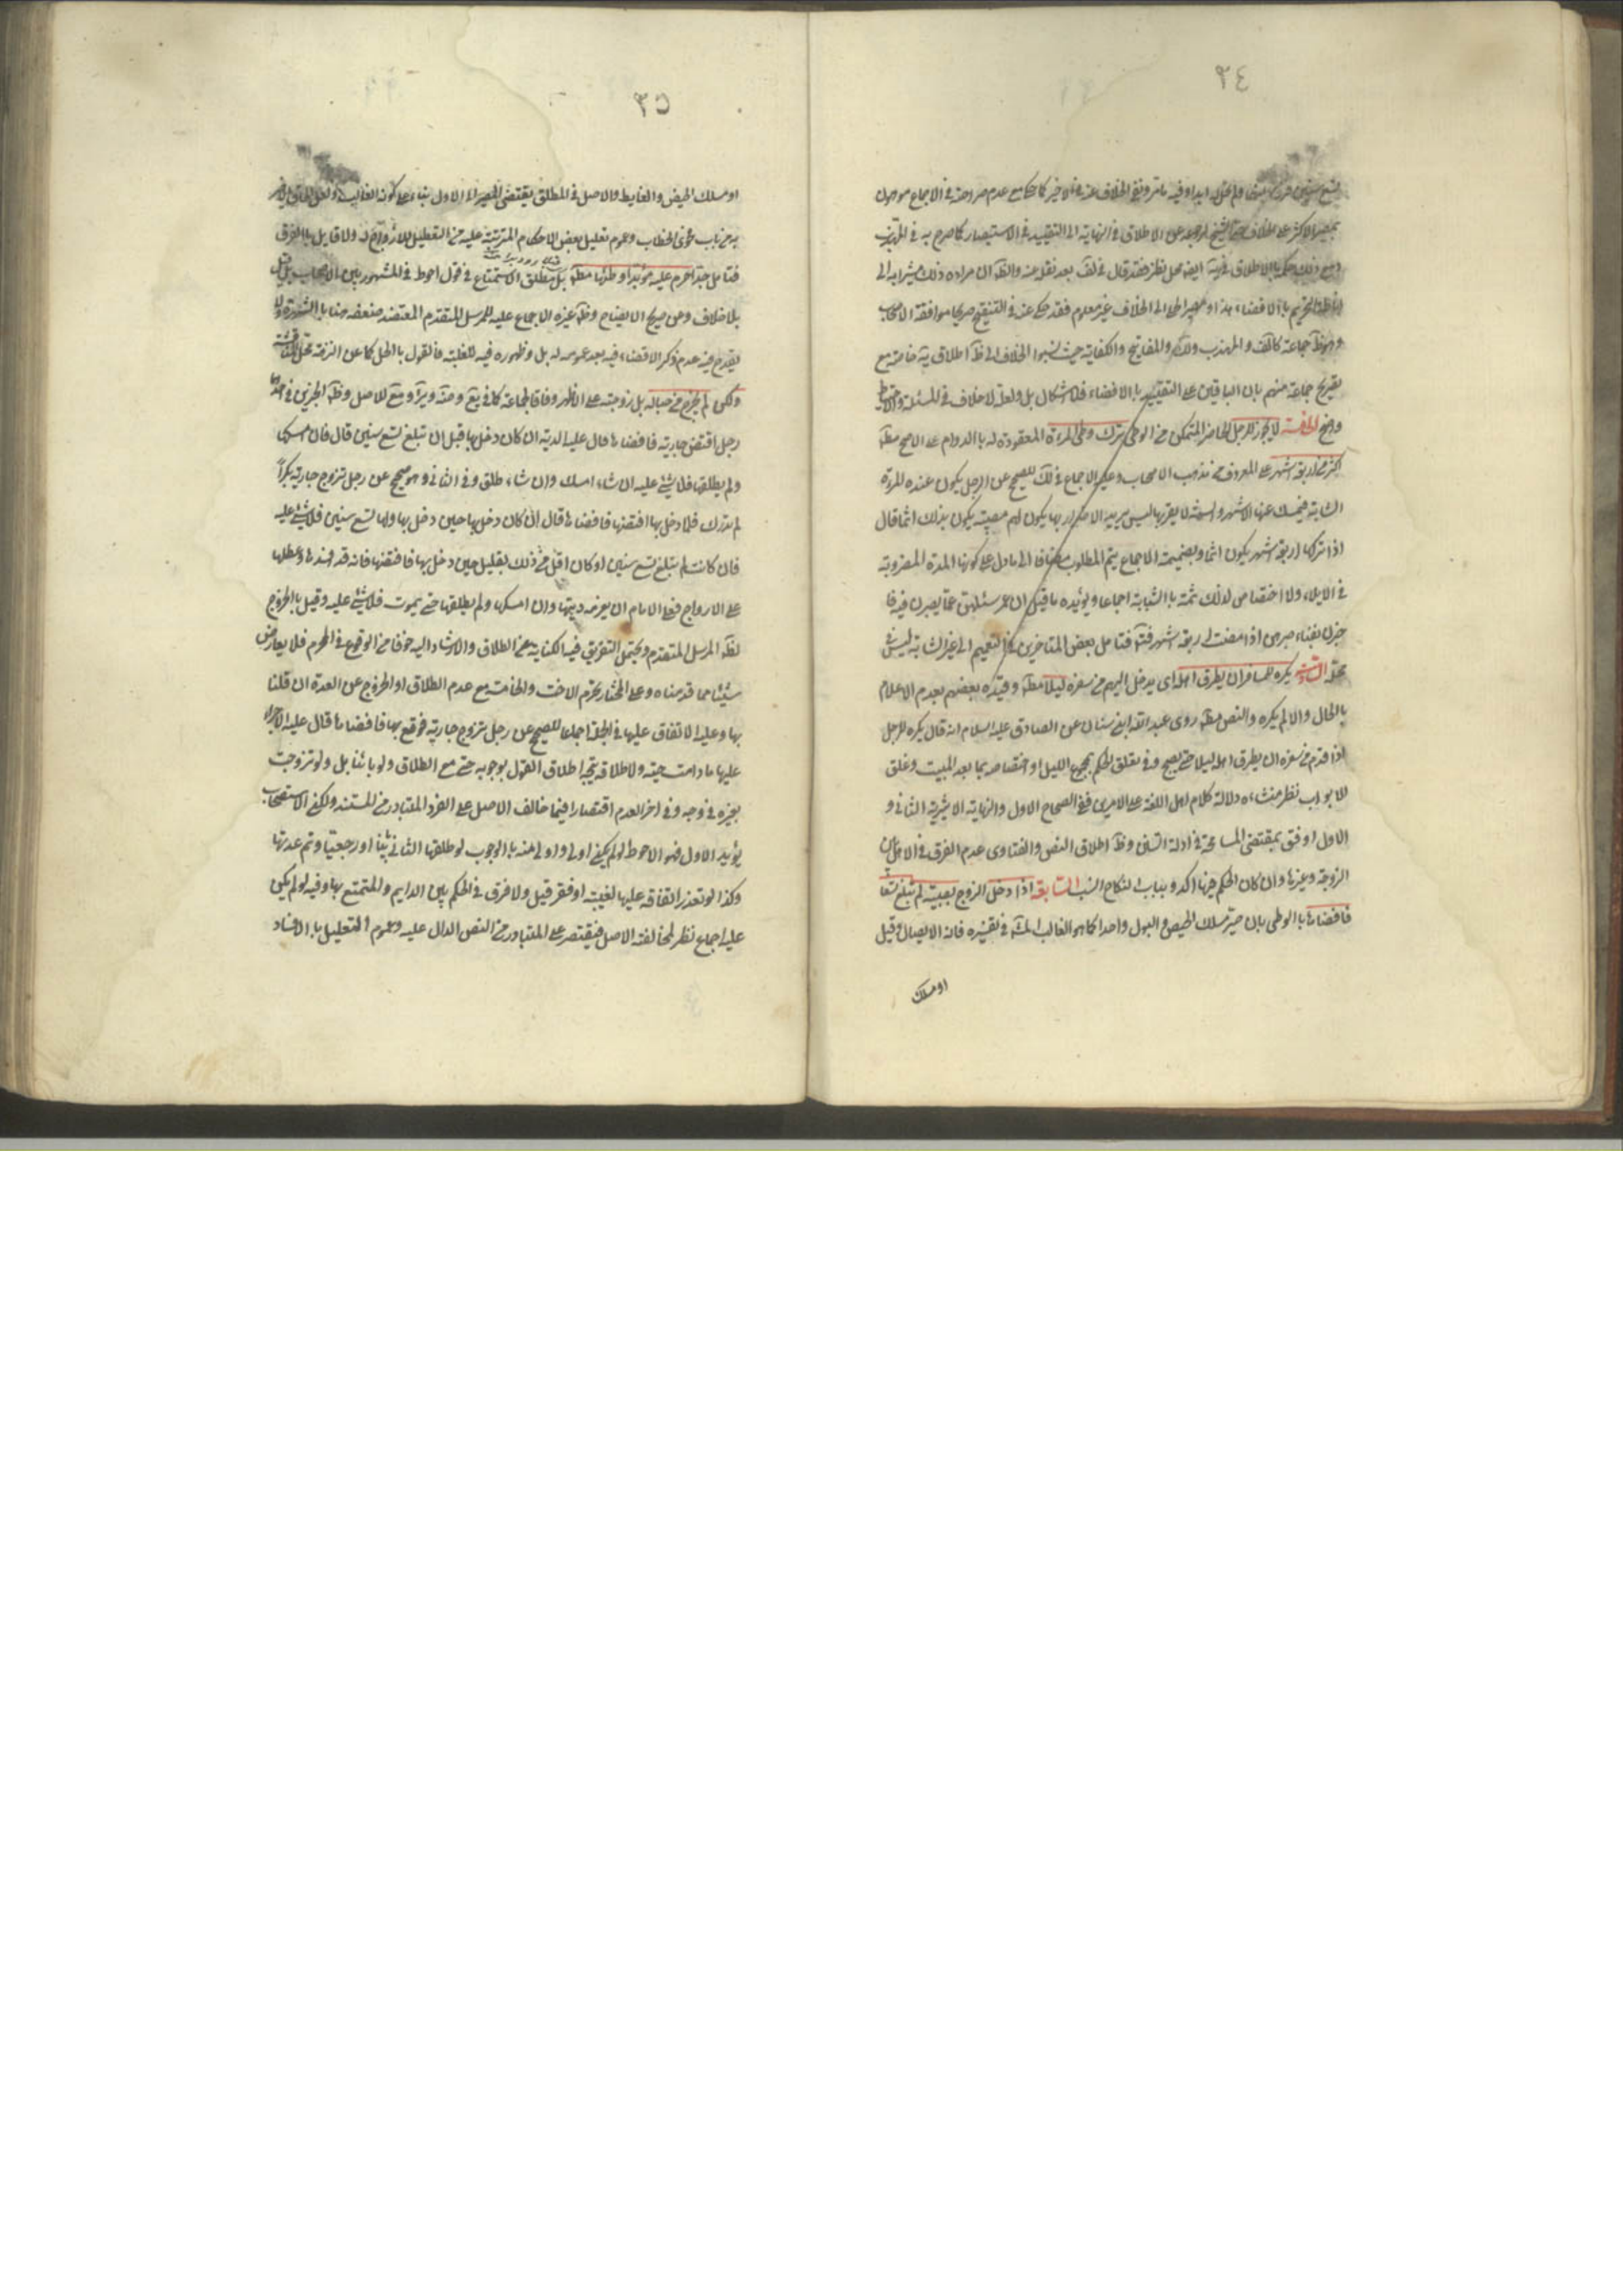 ٣٤
بمصير الاكثر على الخلاف حتى الشيخ لرجوعه عن الاطلاق في النهاية الى التقييد في الاستبصار كما صرح به في المهذب
ومع ذلك حكمه بالاطلاق في يه ايضا محل نظر فقد قال في لف بعد نقله عنه والظ ان مراده ذلك مشيرا به الى
التحريم بالافضاء هذا و مصير الحلي الى الخلاف غير معلوم فقد حكى عنه في التنقيح صريحا موافقة الاصحاب
وهو ظ جماعة كالف والمهذب ولك والمفاتيح والكفاية حيث لم ينسبوا الخلاف الى ظ اطلاق يه خاصة مع
تصريح جماعة منهم بان الباقين على التقييد بالافضاء فلا اشكال بل ولعله لا خلاف في المسئلة والاحتياط
واضح الخامسة لا يجوز للرجل الحاضر المتمكن من الوطي ترك وطي المرءة المعقودة له بالدوام على الاصح مط
اكثر من اربعة اشهر على المعروف من مذهب الاصحاب وعليه الاجماع في لك للصحيح عن الرجل يكون عنده المرءة
الشابة فيمسك عنها الاشهر والسنة لا يقربها ليس يريد الاضرار بها يكون لهم مصيبة يكون بذلك اثما قال
اذا تركها اربعة اشهر يكون اثما وبضميمة الاجماع يتم المطلوب مضافا الى ما دل على كونها المدة المضروبة
في الايلاء ولا اختصاص لذلك ثمة بالشابة اجماعا ويؤيده ما قيل ان عمر سئلهن عما يصبرن فيه فا
خبرن بفناء صبرهن اذا مضت اربعة اشهر فتامل بعض المتاخرين في التعميم الى غير الشابة ليس في
محله السادسة يكره للمسافر ان يطرق اهله اي يدخل اليهم من سفره ليلا مط وقيده بعضهم بعدم الاعلام
بالحال والا لم يكره والنص مط روى عبد الله ابن سنان عن الصادق عليه السلام انه قال يكره للرجل
اذا قدم من سفره ان يطرق اهله ليلا حتى يصبح وفي تعلق الحكم بمجموع الليل او اختصاصه بما بعد المبيت وغلق
الابواب نظر منشاه دلالة كلام اهل اللغة على الامرين ففي الصحاح الاول والنهاية الاثيرية الثاني و
الاول اوفق بمقتضى المسامحة في ادلة السنن وظ اطلاق النص والفتاوى عدم الفرق في الاهل بين
الزوجة وغيرها وان كان الحكم فيها اكد وبباب النكاح انسب السابعة اذا دخل الزوج بصبية لم تبلغ تسعا
فافضاها بالوطي بان صير مسلك الحيض والبول واحدا كما هو الغالب المشهور في تفسيره فانه الايصال وقيل
او مسلك
٣٥
او مسلك الحيض والغايط والاصل في المطلق يقتضي المصير الى الاول بناء على كونه الغالب
به من باب فحوى الخطاب وعموم تعليل بعض الاحكام المترتبة عليه من التعطيل للازواج له ولا قايل بالفرق
فتامل جدا حرم عليه مؤبدا وطئها مط بل مطلق الاستمتاع في قول احوط في المشهور بين الاصحاب بل قيل
بلا خلاف وعن صريح الايضاح وظ غيره الاجماع عليه للمرسل المتقدم المعتضد ضعفه هنا بالشهرة ولا
يقدح فيه عدم ذكر الافضاء فيه بعد عمومه له بل وظهوره فيه للغلبة فالقول بالحل كما عن النزهة محل المناقشة
ولكن لم يخرج من حباله بل زوجته على الاظهر وفاقا لجماعة كما في يع ومنه ويرا ومع للاصل وظ الخبرين في احدهما
رجل افتض جارية فافضاها قال عليه الدية ان كان دخل بها قبل ان تبلغ تسع سنين قال فان امسكها
ولم يطلقها فلا شئ عليه ان شاء امسك وان شاء طلق وفي الثاني وهو صحيح عن رجل تزوج جارية بكراً
لم تدرك فلما دخل بها افتضها فافضاها قال ان كان دخل بها حين دخل بها ولها تسع سنين فلا شئ عليه
فان كانت لم تبلغ تسع سنين او كان اقل من ذلك بقليل حين دخل بها فافتضها فانه قد افسدها وعطلها
على الازواج فعلى الامام ان يغرمه ديتها وان امسكها ولم يطلقها حتى يموت فلا شئ عليه وقيل بالخروج
لظ المرسل المتقدم ويحتمل التفريق فيه الكناية عن الطلاق والارشاد اليه خوفا من الوقوع في المحرم فلا يعارض
شيئا مما قدمناه وعلى المختار تحرم الاخت والخامسة مع عدم الطلاق او الخروج عن العدة ان قلنا
بها وعليه الانفاق عليها في الجملة اجماعا للصحيح عن رجل تزوج جارية فوقع بها فافضاها قال عليه الاجراء
عليها ما دامت حية ولاطلاقه يتجه اطلاق القول بوجوبه حتى مع الطلاق ولو بائنا بل ولو تزوجت
بغيره في وجه وفي اخر العدم اقتصارا فيما خالف الاصل على الفرد المتبادر من المستند ولكن الاستصحاب
يؤيد الاول فهو الاحوط لو لم يكن اولى واولى منه بالوجوب لو طلقها الثاني بائنا او رجعيا وتم عدتها
وكذا لو تعذر انفاقه عليها لغيبة او فقر قيل ولا فرق في الحكم بين الدايم والمتمتع بها وفيه لو لم يكن
عليه اجماع نظر لمخالفته الاصل فيقتصر على المتبادر من النص الدال عليه وعموم التعليل بالافساد